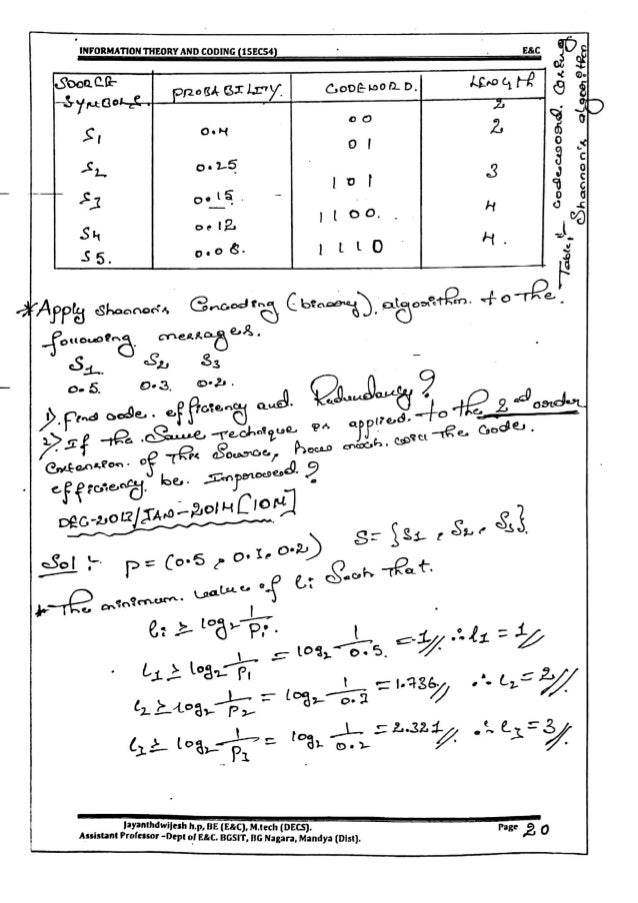 INFORMATION THEORY AND CODING (15EC54) E&C
SOURCE SYMBOLS. PROBABILITY. CODEWORD. LENGTH
S1 0.4 00 2
S2 0.25 01 2
S3 0.15 101 3
S4 0.12 1100. 4
S5. 0.08. 1110 4.
Table:- codeword. Using
Shannon's algorithm
*Apply Shannon's Encoding (binary). algorithm. to the.
following. messages.
S1 S2 S3
0.5. 0.3. 0.2.
1). Find code. efficiency and. Redundancy?
2). If the. Same technique is applied. to the 2nd order
Extension. of this Source, how much. will the code.
efficiency be. Improved.?
DEC-2013/JAN-2014 [10M]
Sol :- P = (0.5, 0.3, 0.2) S = {S1, S2, S3}
* The minimum. value of li Such that.
li ≥ log2 1/Pi.
l1 ≥ log2 1/P1 = log2 1/0.5. = 1// ∴ l1 = 1//
l2 ≥ log2 1/P2 = log2 1/0.3 = 1.736// ∴ l2 = 2//.
l3 ≥ log2 1/P3 = log2 1/0.2 = 2.321//. ∴ l3 = 3//.
Jayanthdwijesh h.p, BE (E&C), M.tech (DECS). Page 20
Assistant Professor –Dept of E&C. BGSIT, BG Nagara, Mandya (Dist).